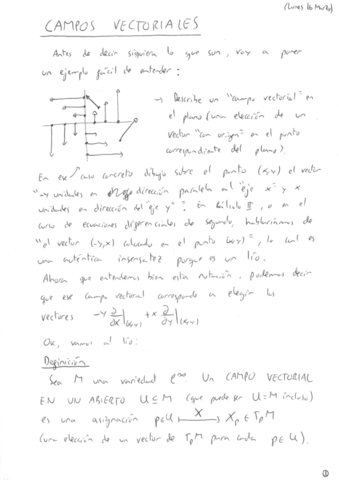 (Lunes 16 Marzo)
CAMPOS VECTORIALES
Antes de decir siquiera lo que son, voy a poner
un ejemplo fácil de entender:
→ Describe un "campo vectorial" en
el plano (una elección de un
vector "con origen" en el punto
correspondiente del plano)
En ese caso concreto dibujo sobre el punto (x,y) el vector
"-y unidades en dirección paralela al "eje x" y x
unidades en dirección del "eje y". En Cálculo II, o en el
curso de ecuaciones diferenciales de segundo, hablaríamos de
"el vector (-y,x) calculado en el punto (x,y)", lo cual es
una auténtica insensatez porque es un lío.
Ahora que entendemos bien esta notación, podemos decir
que ese campo vectorial corresponde a elegir los
vectores -y ∂/∂x|(x,y) + x ∂/∂y|(x,y)
Ok, vamos al lío:
Definición
Sea M una variedad C∞. Un CAMPO VECTORIAL
EN UN ABIERTO U ⊆ M (que puede ser U = M incluso)
es una asignación p∈U ⟼ X Xp ∈ TpM
(una elección de un vector de TpM para cada p∈U).
①